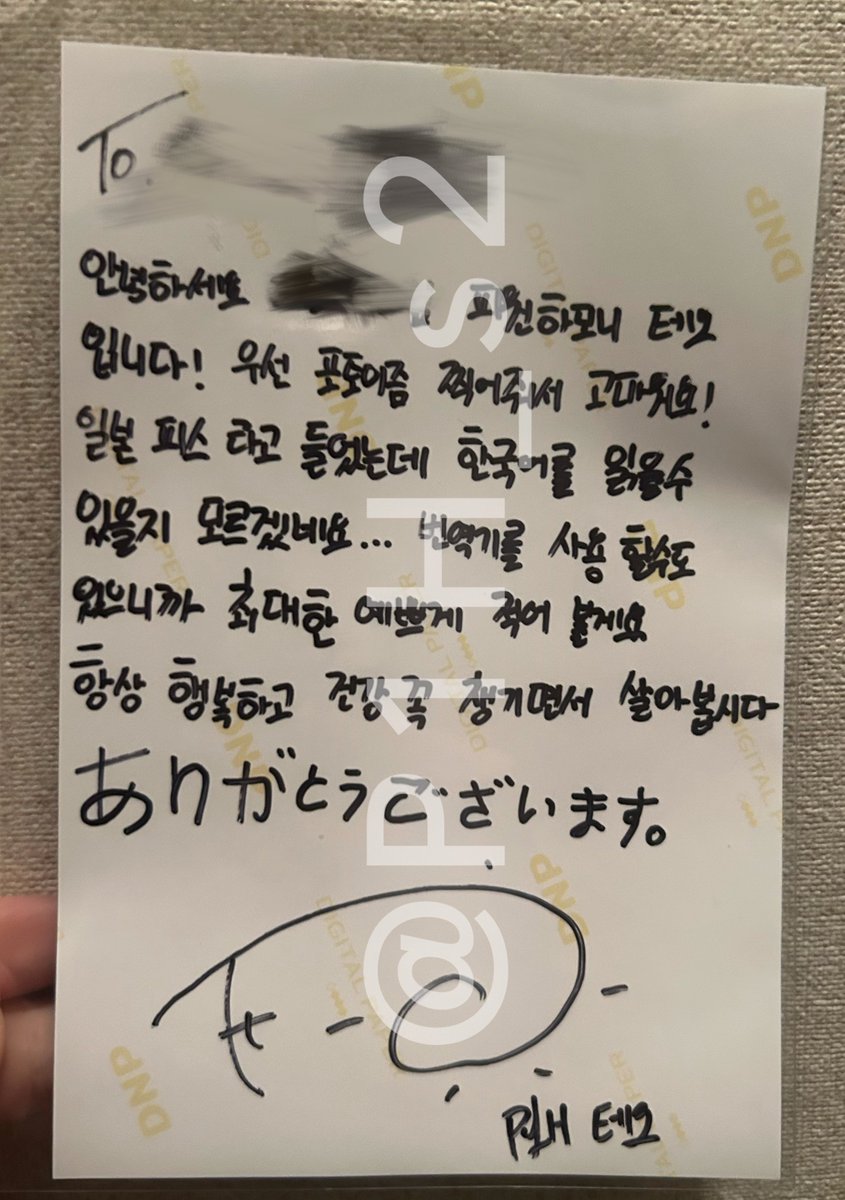 To.
안녕하세요 , 피원하모니 테오
입니다! 우선 포토이즘 찍어줘서 고마워요!
일본 피스 라고 들었는데 한국어를 읽을수
있을지 모르겠네요... 번역기를 사용 할수도
있으니까 최대한 예쁘게 적어 볼게요
항상 행복하고 건강 꼭 챙기면서 살아봅시다
ありがとうございます。
P1H 테오
@P1H_s2
DNP
DIGITAL PAPER